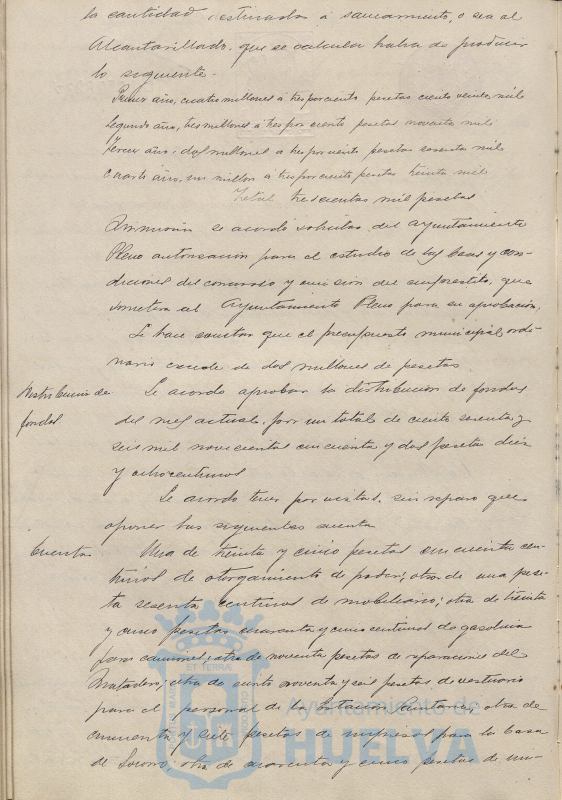 la cantidad destinada á saneamiento, o sea al
Alcantarillado, que se calcular habra de producir
lo siguiente.
Primer año, cuatro millones á tres por ciento pesetas ciento veinte mil
Segundo año, tres millones á tres por ciento pesetas noventa mil
Tercer año, dos millones a tres por ciento pesetas sesenta mil
Cuarto año, un millon a tres por ciento pesetas treinta mil
Total trescientas mil pesetas
se acordó solicitar del Ayuntamiento
Pleno autorización para el estudio de las bases y con-
diciones del concurso y emision del emprestito, que
sometera al Ayuntamiento Pleno para su aprobación.
Se hace constar que el presupuesto municipal ordi-
nario excede de dos millones de pesetas
Distribucion de
fondos
Se acordo aprobar la distribucion de fondos
del mes actual, por un total de ciento sesenta y
seis mil novecientas cincuenta y dos pesetas diez
y ocho centimos
Se acordo tener por vistas, sin reparo que
oponer las siguientes cuentas
Cuentas
Una de treinta y cinco pesetas cincuenta cen-
timos de otorgamiento de poder; otra de una pese-
ta sesenta centimos de mobiliario; otra de treinta
y cinco pesetas cuarenta y cinco centimos de gasolina
para camiones; otra de noventa pesetas de reparaciones del
Matadero; otra de ciento noventa y seis pesetas de vestuario
para el personal de la Estacion Sanitaria, otra de
cincuenta y siete pesetas de impresos para la Casa
de Socorro, otra de cuarenta y cinco pesetas de
Ayuntamiento de
HUELVA